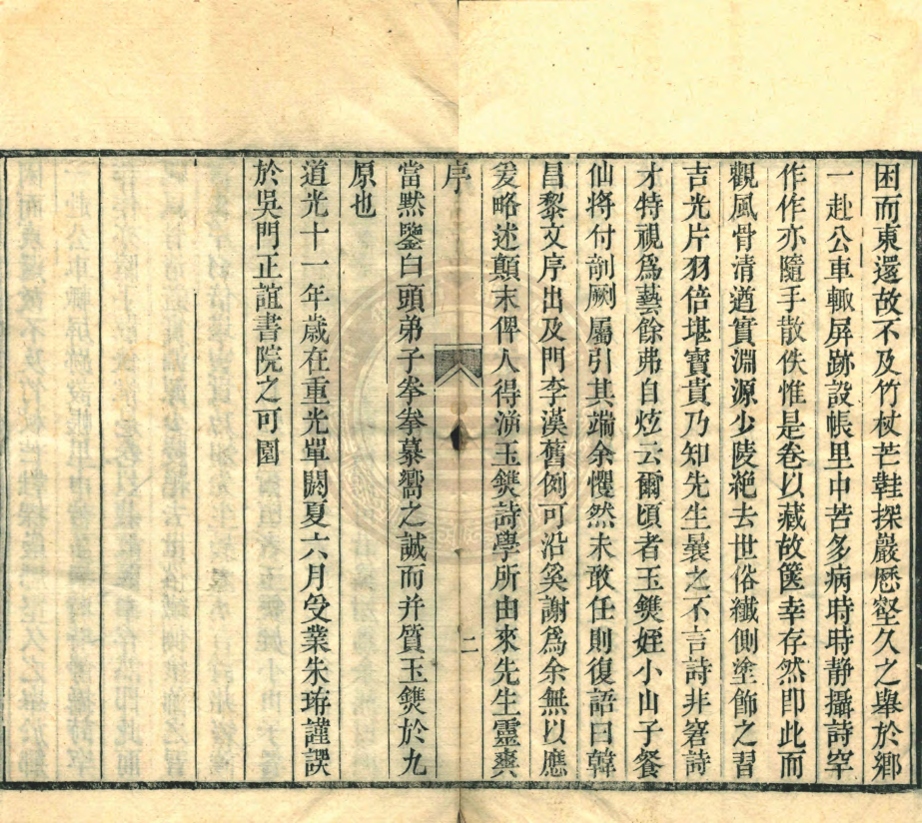 困而東還故不及竹杖芒鞋探巖歷壑久之舉於鄉
一赴公車輙屏跡設帳里中苦多病時時静攝詩罕
作作亦隨手散佚惟是卷以藏故篋幸存然即此而
觀風骨清遒實淵源少陵絶去世俗纎側塗飾之習
吉光片羽倍堪寶貴乃知先生曩之不言詩非窘詩
才特視爲藝餘弗自炫云爾頃者玉䥥姪小山子餐
仙將付剞劂屬引其端余戄然未敢任則復語曰韓
昌黎文序出及門李漢舊例可沿奚謝爲余無以應
爰略述顛末俾人得溯玉䥥詩學所由來先生靈爽
序
二
當默鑒白頭弟子拳拳慕嚮之誠而并質玉䥥於九
原也
道光十一年歳在重光單閼夏六月受業朱珔謹譔
於吳門正誼書院之可園